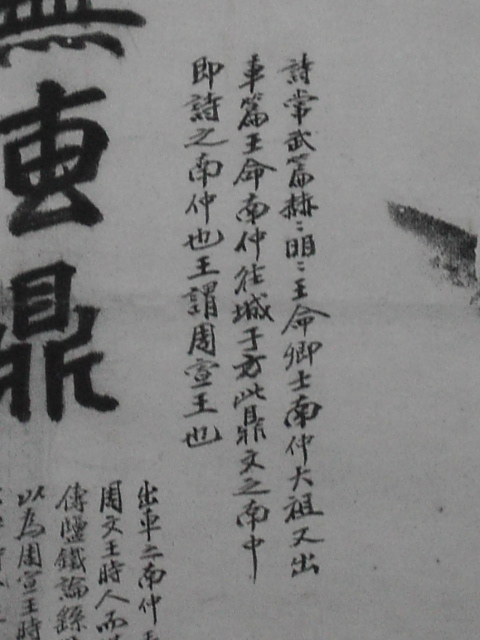 詩常武篇赫〻明〻王命卿士南仲大祖又出
車篇王命南仲往城于方此鼎文之南中
即詩之南仲也王謂周宣王也
無叀鼎
出車之南仲
周文王時人而
傳鹽鐵論
以為周宣王時